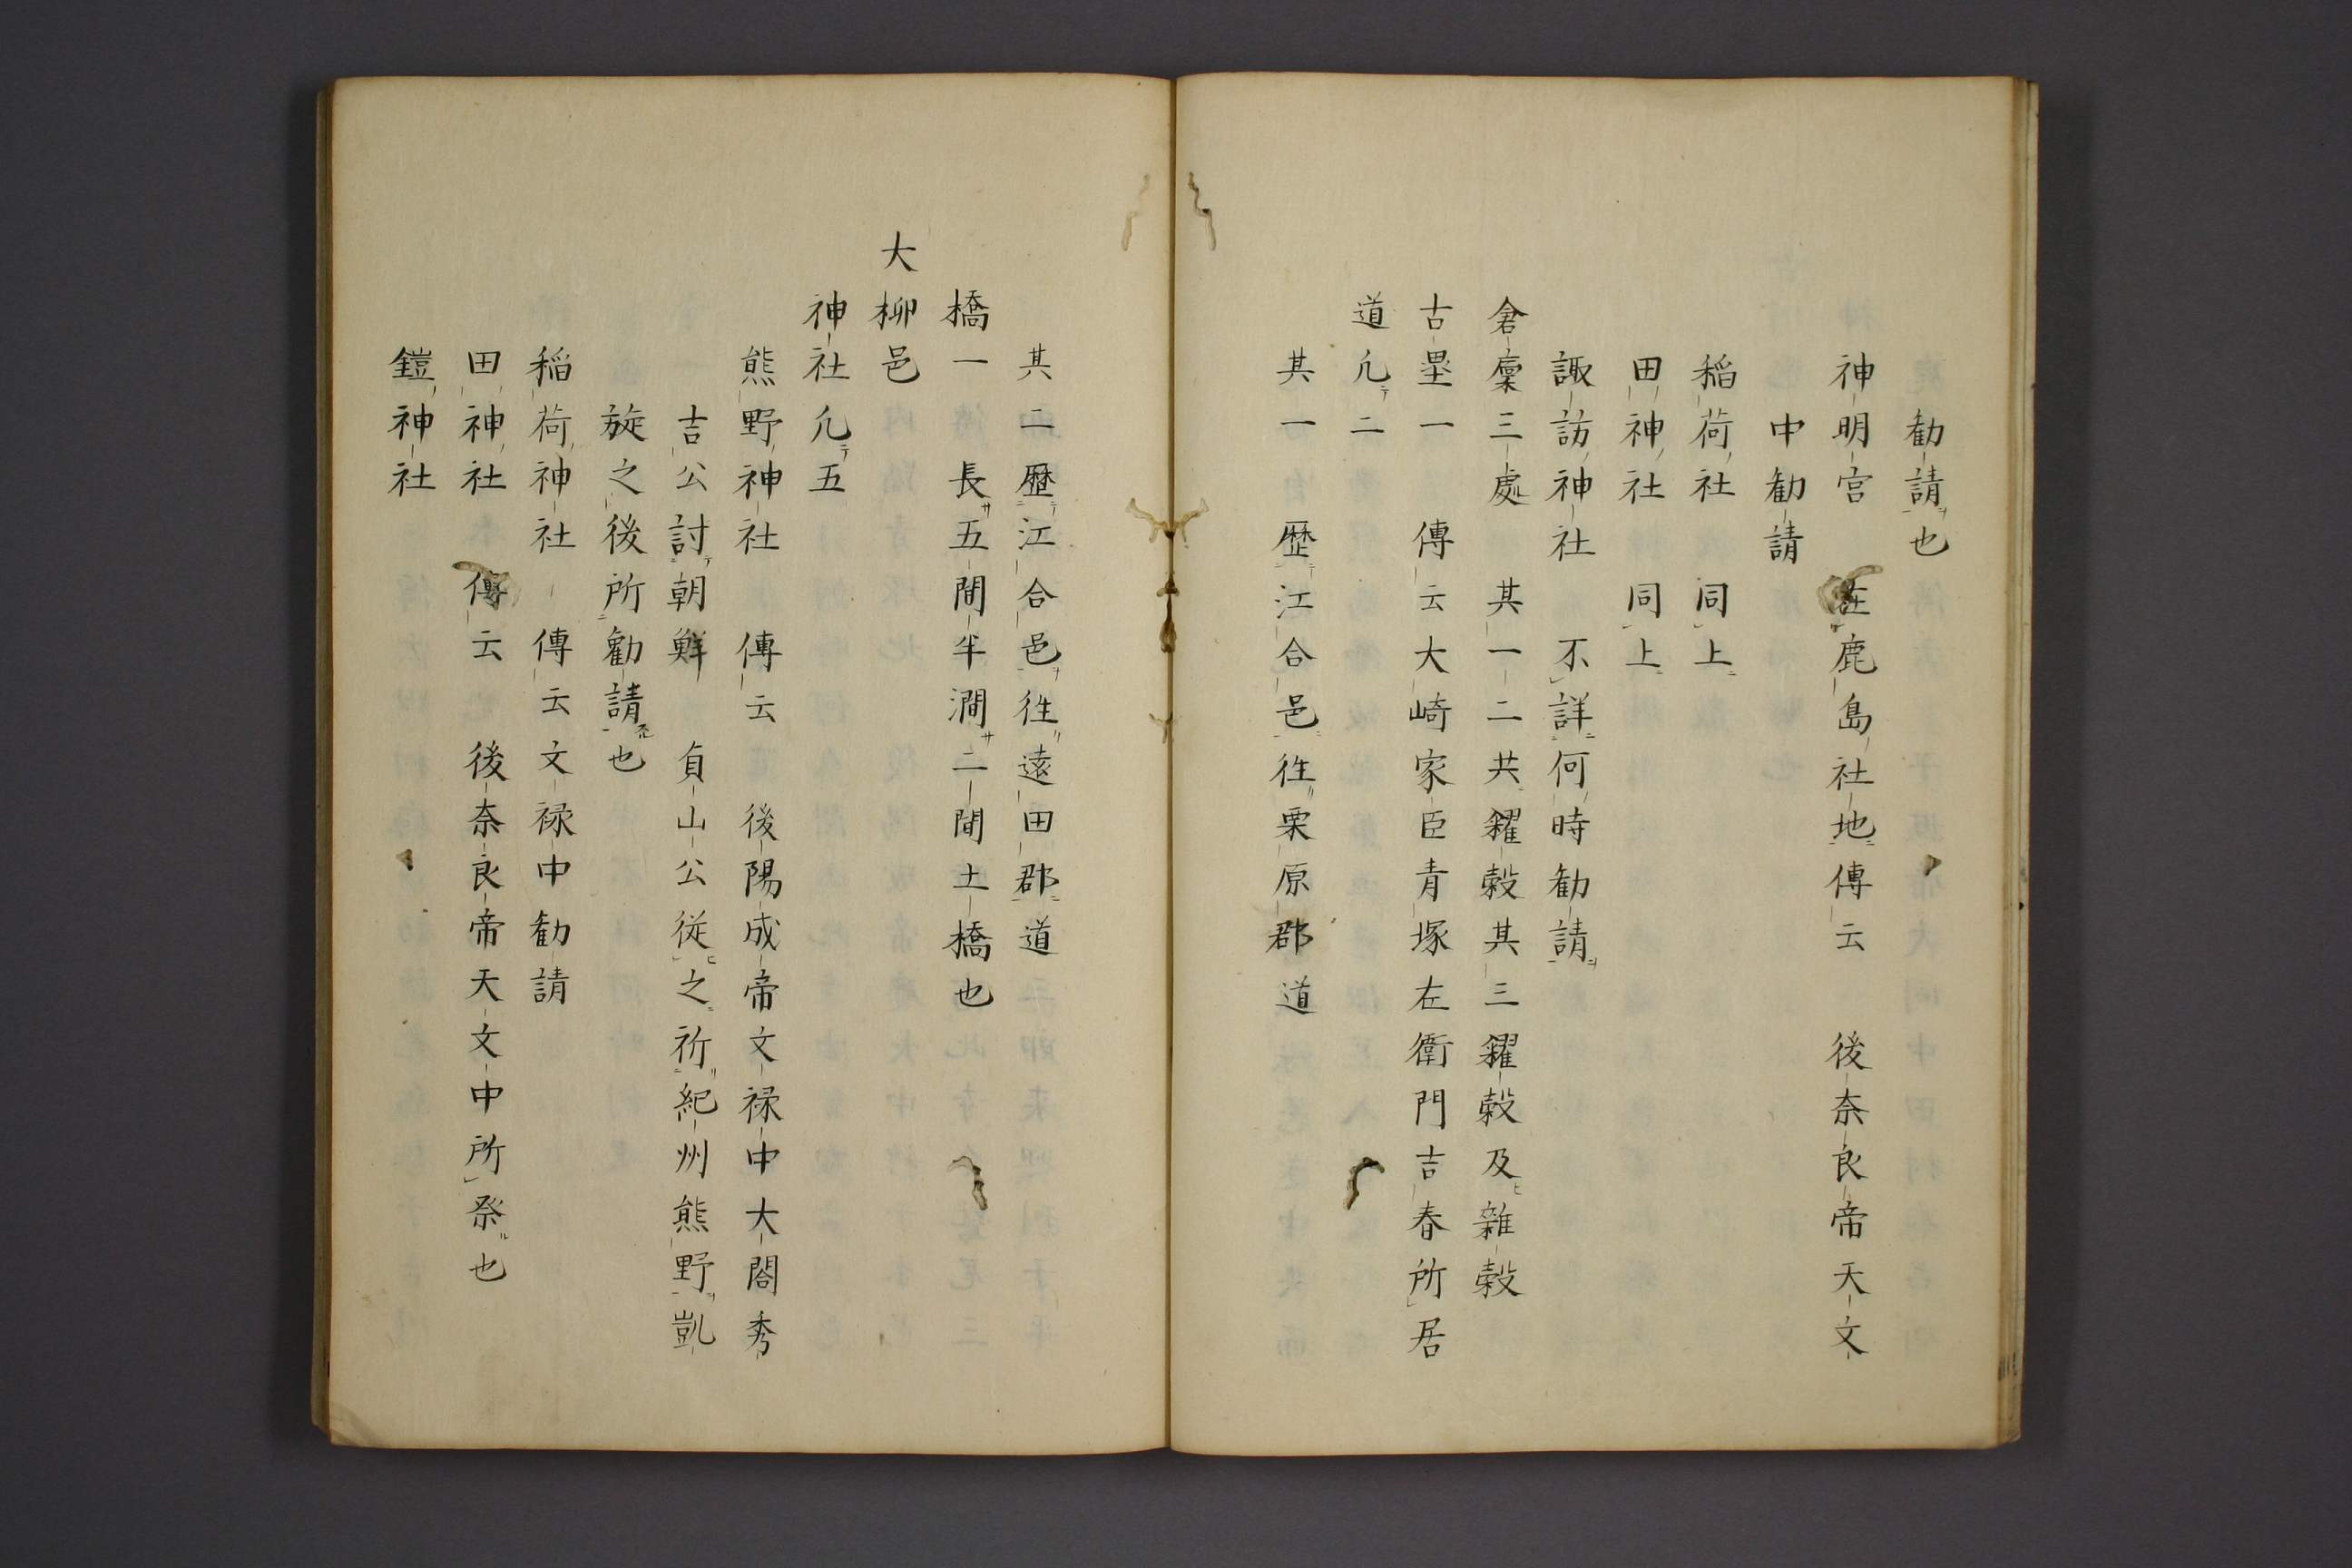 勸請也
神明宮 在鹿島社地傳云 後奈良帝天文
中勸請
稲荷社 同上
田神社 同上
諏訪神社 不詳何時勸請
倉廩三處 其一二共糴穀其三糴穀及雜穀
古壘一 傳云大崎家臣青塚左衛門吉春所居
道凢二
其一 歴江合邑徃栗原郡道
其二歴江合邑徃遠田郡道
橋一 長五間半濶二間土橋也
大柳邑
神社凢五
熊野神社 傳云 後陽成帝文禄中大閤秀
吉公討朝鮮 貞山公従之祈紀州熊野凱
旋之後所勸請也
稲荷神社 傳云文禄中勸請
田神社 傳云 後奈良帝天文中所祭也
鎧神社